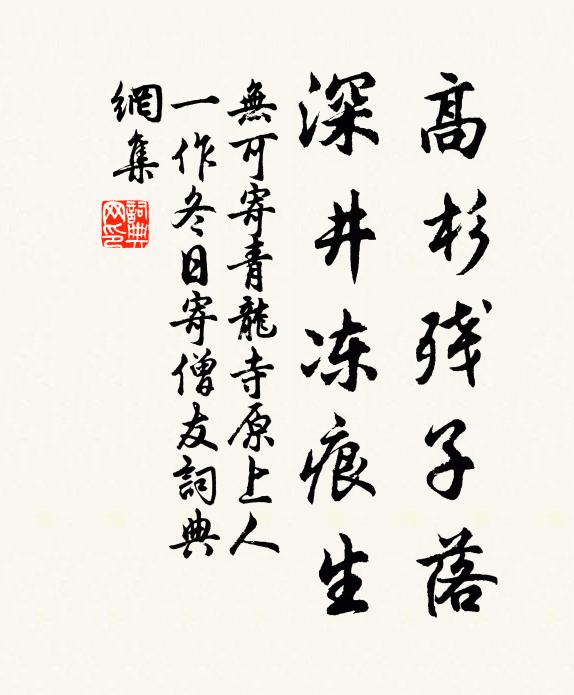 高杉残子落
深井冻痕生
無可寄青龍寺原上人
一作冬日寄僧友詞典
網集
詞典
网印